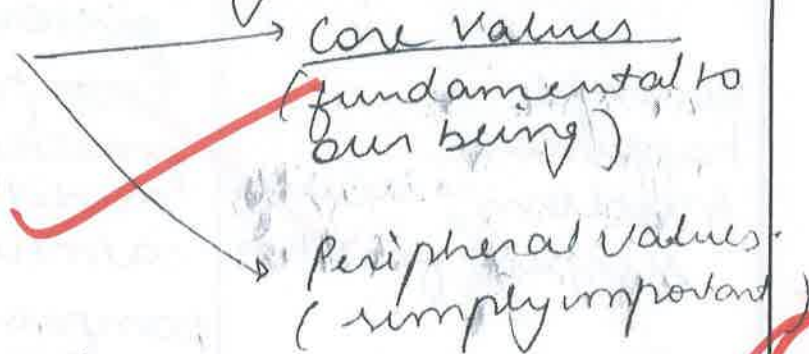 Core Values
(fundamental to
our being)
Peripheral Values.
(simply important)